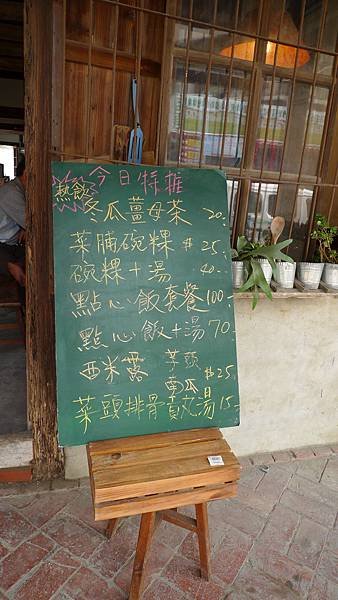 今日特推
熱飲
冬瓜薑母茶 20.
菜脯碗粿 $25.
碗粿+湯 40.
點心飯套餐 100-
點心飯+湯 70.
西米露 芋頭 南瓜 $25
菜頭排骨貢丸湯 15-